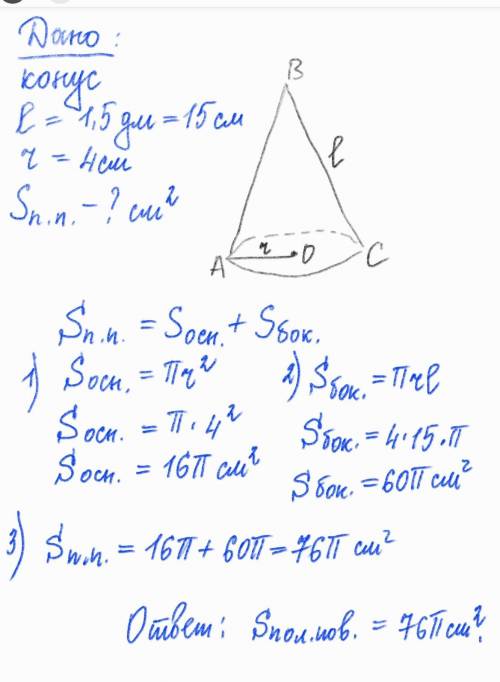 Дано:
конус
l = 1,5 дм = 15 см
r = 4 см
Sп.п. - ? см²
B
l
r
A
O
C
Sп.п. = Sосн. + Sбок.
1) Sосн. = πr²
Sосн. = π · 4²
Sосн. = 16π см²
2) Sбок. = πrl
Sбок. = 4·15·π
Sбок. = 60π см²
3) Sп.п. = 16π + 60π = 76π см²
Ответ: Sпол.пов. = 76π см².